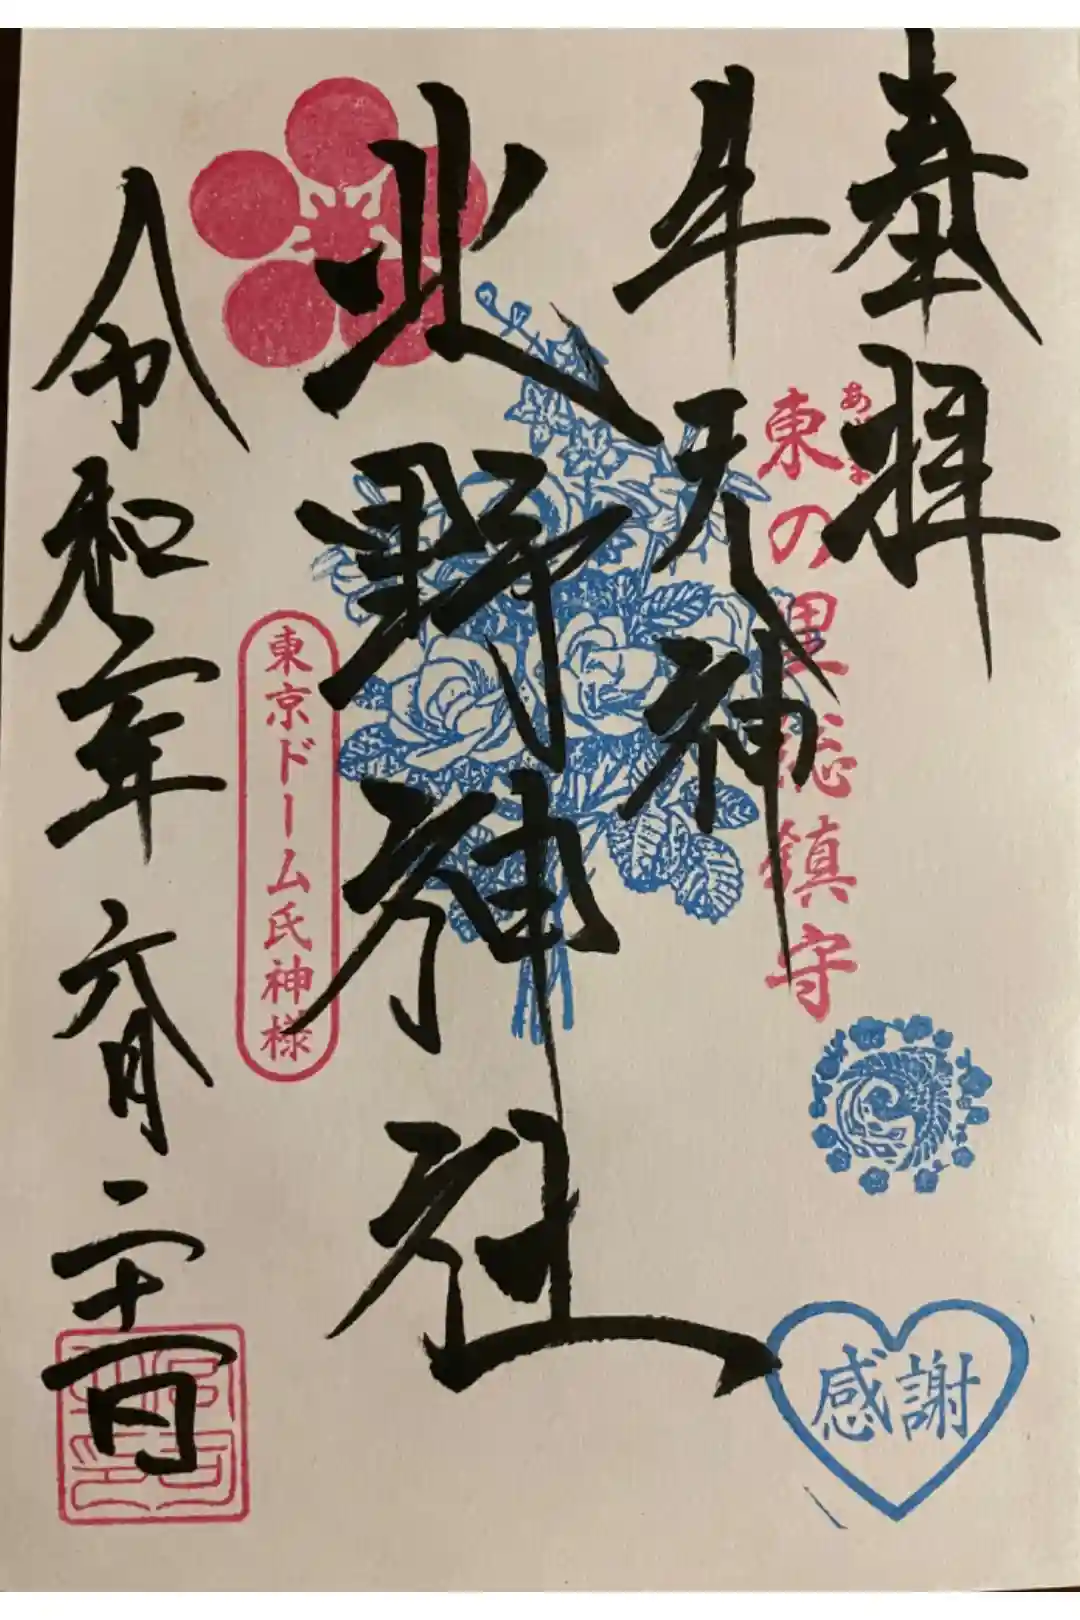 奉拝
東の里総鎮守
牛天神
北野神社
東京ドーム氏神様
令和二年六月二十一日
感謝